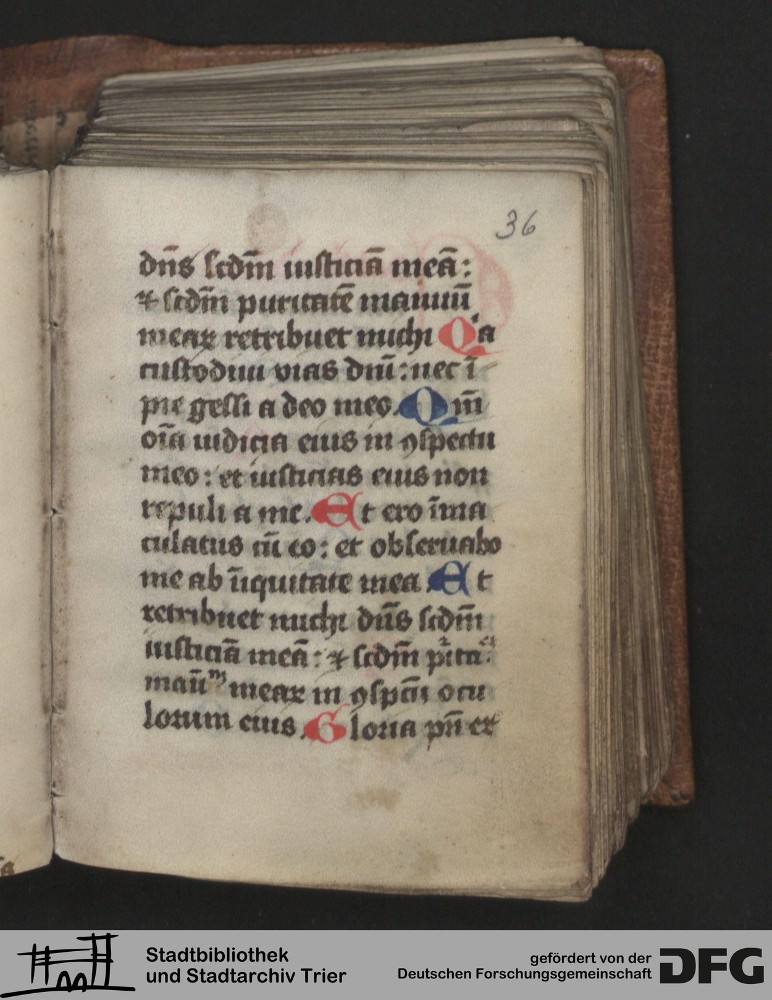 36
dn̄s scdm̄ iusticiā meā:
⁊ scdm̄ puritatē manuū
meaꝝ retribuet michi Qͥa
custodiui vias dnī: nec ī
pie gessi a deo meo. Qm̄
oīa iudicia eius in ꝯspectu
meo: et iusticias eius non
repuli a me. Et ero īma
culatus cū eo: et obseruabo
me ab īiquitate mea. Et
retribuet michi dn̄s scdm̄
iusticiā meā: ⁊ scdm̄
meaꝝ in ꝯspcū ocu
lorum eius. Gloria pr̄i et
Stadtbibliothek
und Stadtarchiv Trier
gefördert von der
Deutschen Forschungsgemeinschaft
DFG